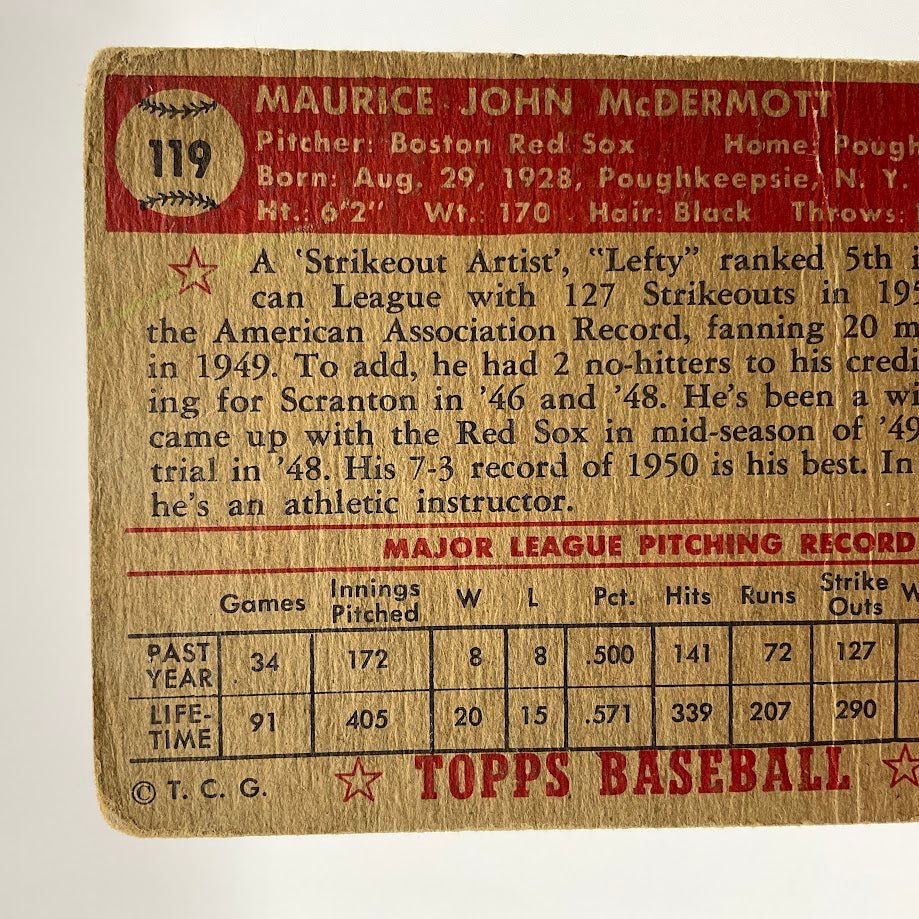 119
MAURICE JOHN McDERMOTT
Pitcher: Boston Red Sox Home: Pough
Born: Aug. 29, 1928, Poughkeepsie, N. Y.
Ht.: 6'2" Wt.: 170 Hair: Black Throws:
A 'Strikeout Artist', "Lefty" ranked 5th i
can League with 127 Strikeouts in 195
the American Association Record, fanning 20 m
in 1949. To add, he had 2 no-hitters to his credi
ing for Scranton in '46 and '48. He's been a wi
came up with the Red Sox in mid-season of '49
trial in '48. His 7-3 record of 1950 is his best. In
he's an athletic instructor.
MAJOR LEAGUE PITCHING RECORD
Games Innings Pitched W L Pct. Hits Runs Strike Outs W
PAST YEAR 34 172 8 8 .500 141 72 127
LIFE-TIME 91 405 20 15 .571 339 207 290
© T. C. G. TOPPS BASEBALL